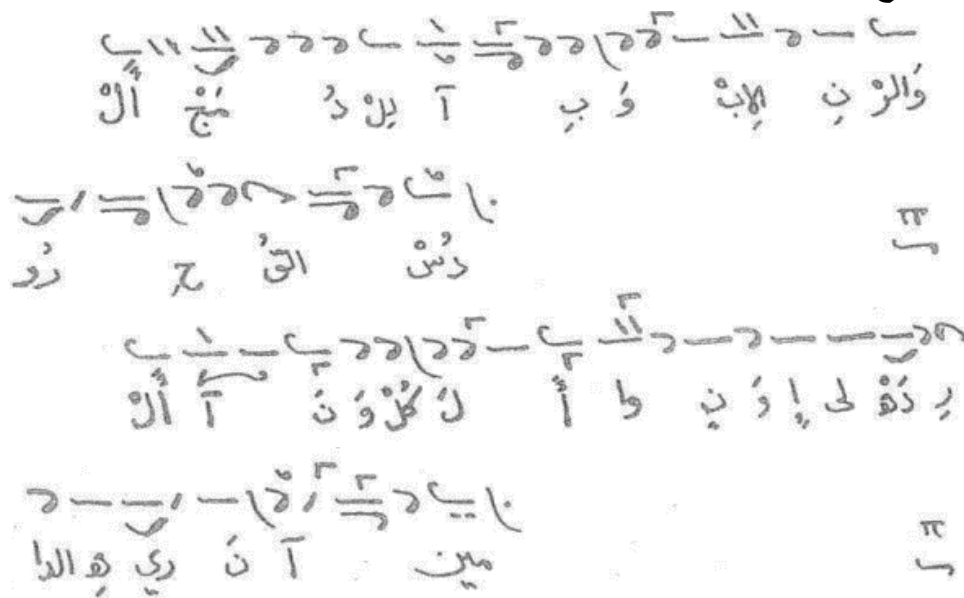 أَلْ مَجْ دُ لِلْ آ بِ وَ الِابْ نِ وَالرْ
رُو حِ القُ دُسْ
أَلْ آ نَ وَ كُلْ لَ أَ وا نٍ وَ إِ لى دَهْ رِ
الدا هِ ري نَ آ مين